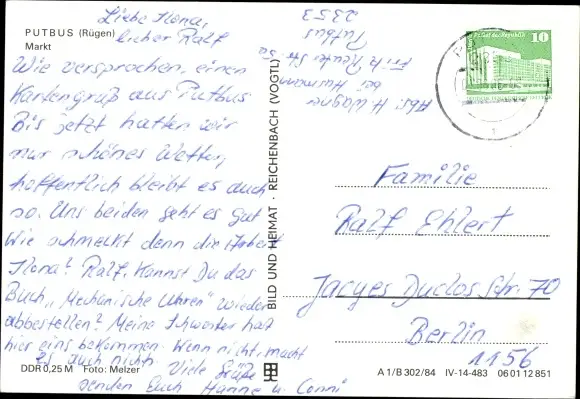 PUTBUS (Rügen)
Markt
Liebe Ilona,
lieber Ralf
Wie versprochen, einen
Kartengruß aus Putbus
Bis jetzt hatten wir
nur schönes Wetter,
hoffentlich bleibt es auch
so. Uns beiden geht es gut
Wie schmeckt denn die Arbeit
Ilona? Ralf, kannst Du das
Buch „Mechanische Uhren" wieder
abbestellen? Meine Schwester hat
hier eins bekommen. Wenn nicht, macht
es auch nichts. Viele Grüße
senden Euch Hanne u. Conni
DDR 0,25 M Foto: Melzer
BILD UND HEIMAT · REICHENBACH (VOGTL)
Abs. H. Wagner
bei
Fritz Reuter Str.
Putbus
2353
10
Familie
Ralf Ehlert
Jacques Duclos Str. 70
Berlin
1156
A 1/B 302/84 IV-14-483 06 01 12 851